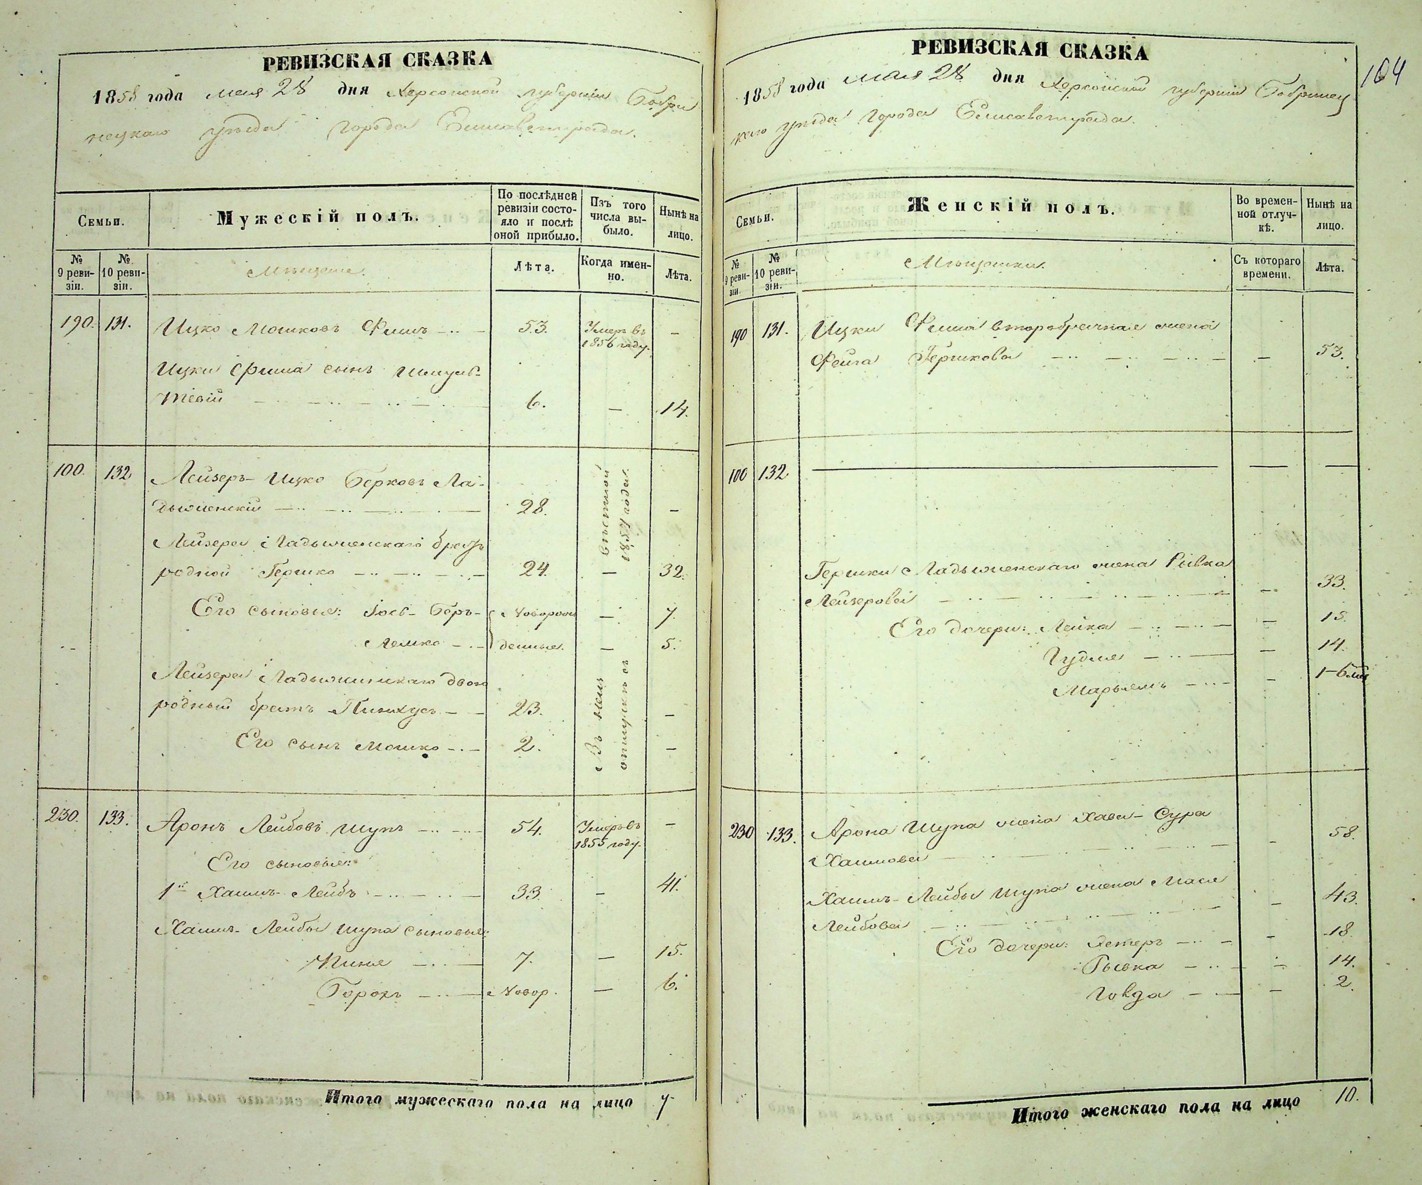 РЕВИЗСКАЯ СКАЗКА
1858 года мая 28 дня Херсонской губернии Бобри
нецкаго уѣзда города Елисаветграда.
Семьи.
Мужескій полъ.
По послѣдней ревизіи состояло и послѣ оной прибыло.
Изъ того числа выбыло.
Нынѣ на лицо.
№ 9 ревизіи.
№ 10 ревизіи.
Мѣщане.
Лѣта.
Когда именно.
Лѣта.
190. 131. Ицко Мошковъ Фишъ 53. Умеръ въ 1856 году. —
Ицки Фиша сынъ
6. — 14.
100 132 Лейзеръ-Ицко Берковъ Ла-
дыженскій 28. —
Лейзера Ладыженскаго братъ
родной Гершко 24. — 32.
Его сыновья: Іосъ-Беръ- Новорож — 7.
Лемко денные. — 5.
Лейзера Ладыженскаго двою
родный братъ Пинхусъ 23. —
Его сынъ Мошко 2. —
1857 года.
Въ неиз
отлучкѣ съ
230. 133. Аронъ Лейбовъ Шупъ 54. Умеръ въ 1855 году. —
Его сыновья:
1й Хаимъ-Лейбъ 33 — 41.
Хаимъ-Лейбы Шупа сыновья:
Пиня 7. — 15.
Новор. — 6.
Итого мужескаго пола на лицо 7
РЕВИЗСКАЯ СКАЗКА
164
1858 года мая 28 дня Херсонской губерніи Бобринец
каго уѣзда города Елисаветграда.
Семьи.
Женскій полъ.
Во временной отлучкѣ.
Нынѣ на лицо.
№ 9 ревизіи.
№ 10 ревизіи.
Мѣщанки.
Съ котораго времени.
Лѣта.
190 131. Ицки Фиша второбрачная жена
Фейга Гершкова — 53.
100 132.
Гершки Ладыженскаго жена Рывка
Лейзерова — 33.
Его дочери: Лейка — 15.
Гудля — 14.
Марьямъ — 1-6 мѣс
230 133. Арона Шупа жена Хава-Сура
Хаимова - 58.
Хаимъ-Лейбы Шупа жена Мася
Лейбова - 43.
Его дочери: Эстеръ - 18.
Рывка - 14.
Говда - 2.
Итого женскаго пола на лицо 10.